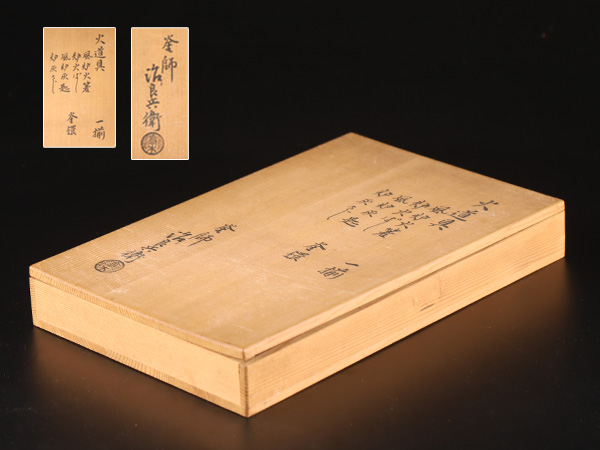 火道具
風炉火箸
炉火ばし
風炉灰匙
炉灰さじ
釜鐶
一揃
釜師
治良兵衛